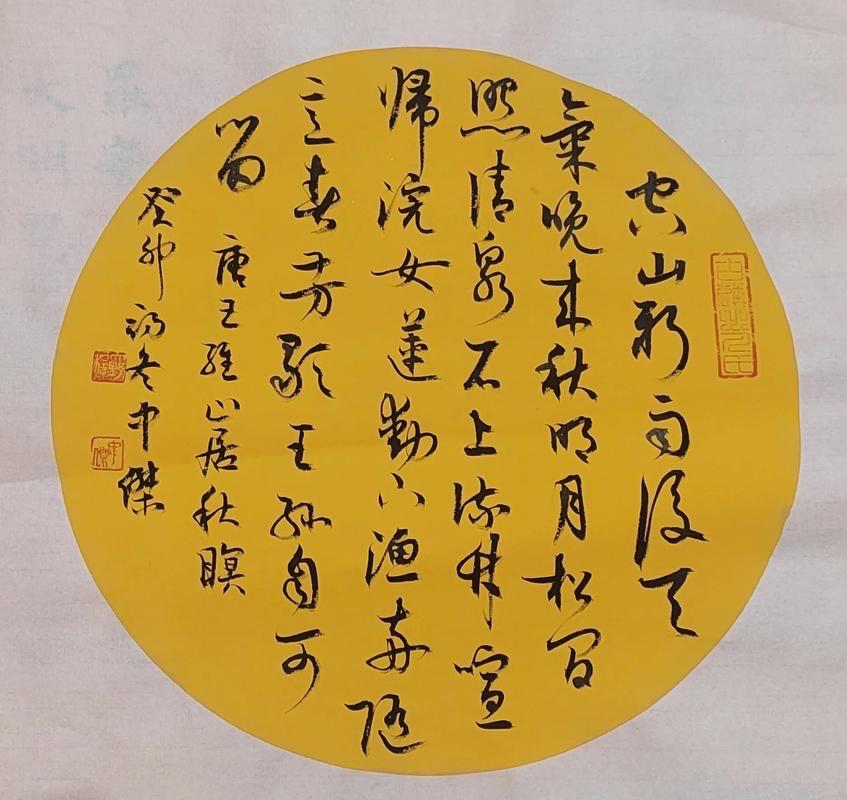 空山新雨後天
氣晚來秋明月松間
照清泉石上流竹喧
歸浣女蓮動下漁舟隨
意春芳歇王孫自可
留 唐王維山居秋瞑
癸卯初冬中傑
中傑